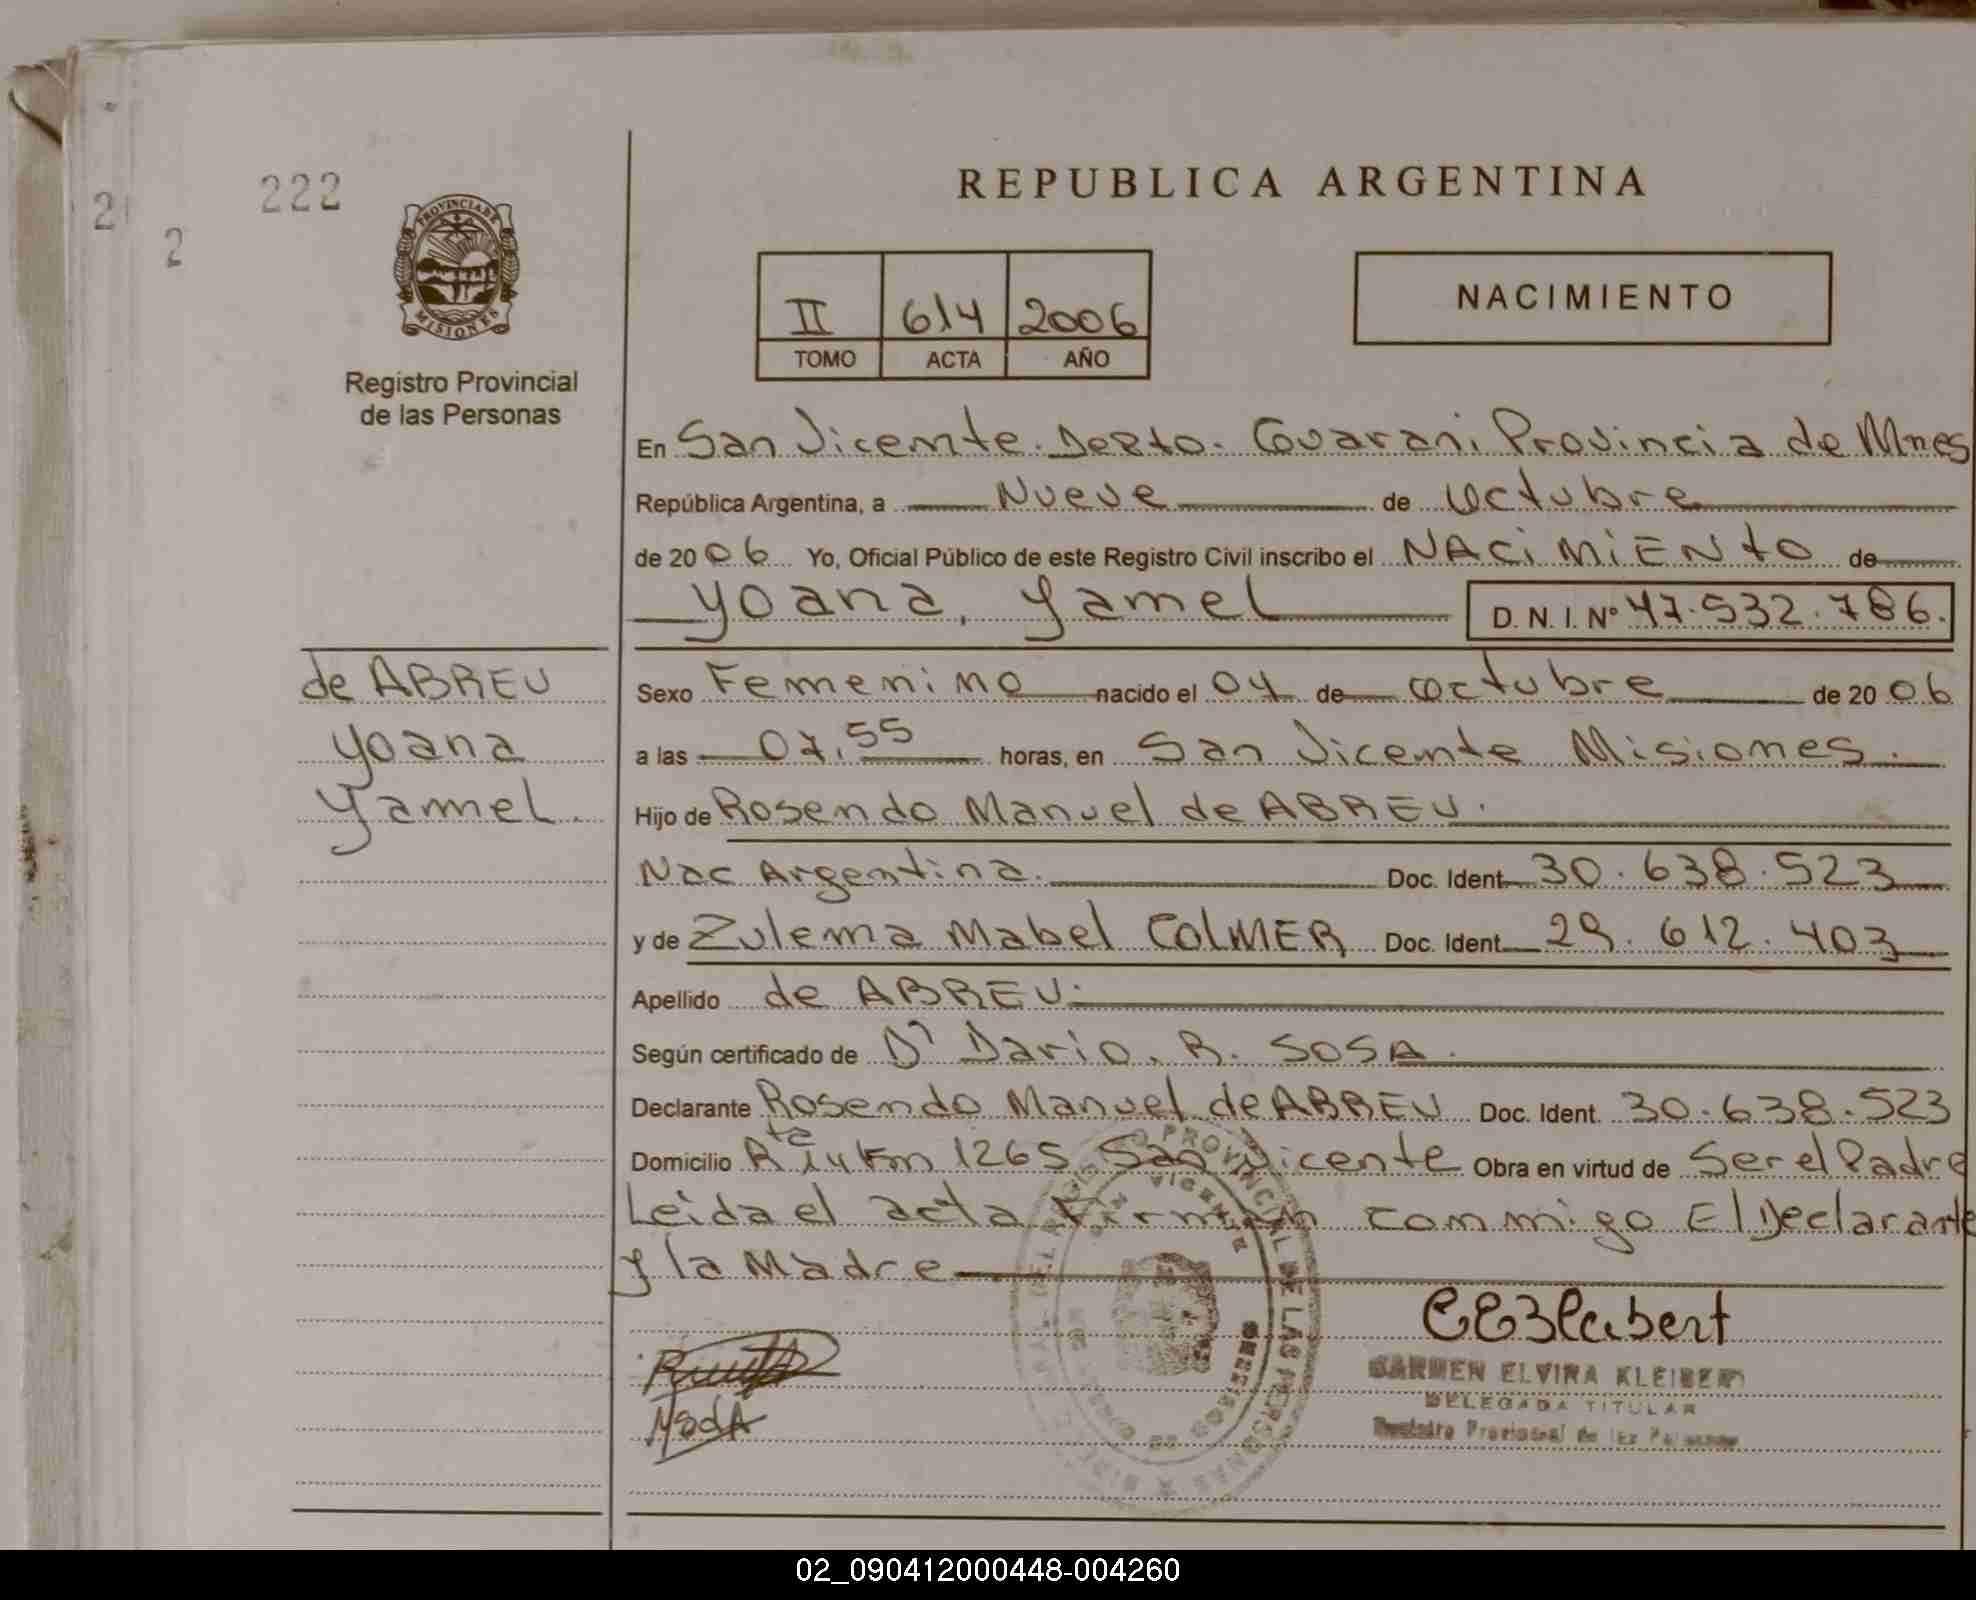 REPUBLICA ARGENTINA
21
2
222
PROVINCIA DE
MISIONES
Registro Provincial
de las Personas
II 614 2006
TOMO ACTA AÑO
NACIMIENTO
En San Vicente. Depto. Guarani Provincia de Mnes
República Argentina, a Nueve de Octubre
de 2006 Yo, Oficial Público de este Registro Civil inscribo el NACIMIENTO de
Yoana, Yamel D. N. I. Nº 47.532.786.
de ABREU
Yoana
Yamel.
Sexo Femenino nacido el 04 de octubre de 2006
a las 07.55 horas, en San Vicente Misiones.
Hijo de Rosendo Manuel de ABREU.
Nac Argentina. Doc. Ident. 30.638.523
y de Zulema Mabel COLMER Doc. Ident. 29.612.403
Apellido de ABREU.
Según certificado de Dr Dario. R. SOSA.
Declarante Rosendo Manuel de ABREU Doc. Ident. 30.638.523
Domicilio Rta 14 Km 1265 San Vicente Obra en virtud de Ser el Padre
Leida el acta Firman conmigo El Declarante
y la Madre
PROVINCIAL DE LAS PERSONAS
CARMEN ELVIRA KLEIBERT
DELEGADA TITULAR
Registro Provincial de las Personas
02_090412000448-004260